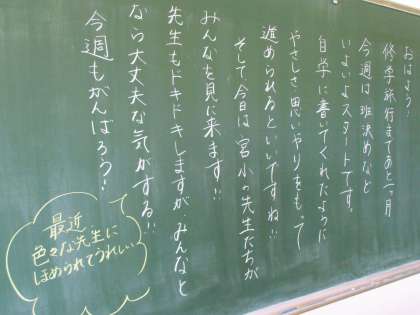 おはよう!
修学旅行まであと一ヶ月
今週は班決めなど
いよいよスタートです。
自学に書いてくれたように
やさしさ、思いやりをもって
進められるといいですね!!
そして今日は宮小の先生たちが
みんなを見に来ます!!
先生もドキドキしますが、みんなと
なら大丈夫な気がする!!
今週もがんばろう!
最近
色々な先生に
ほめられてうれしい